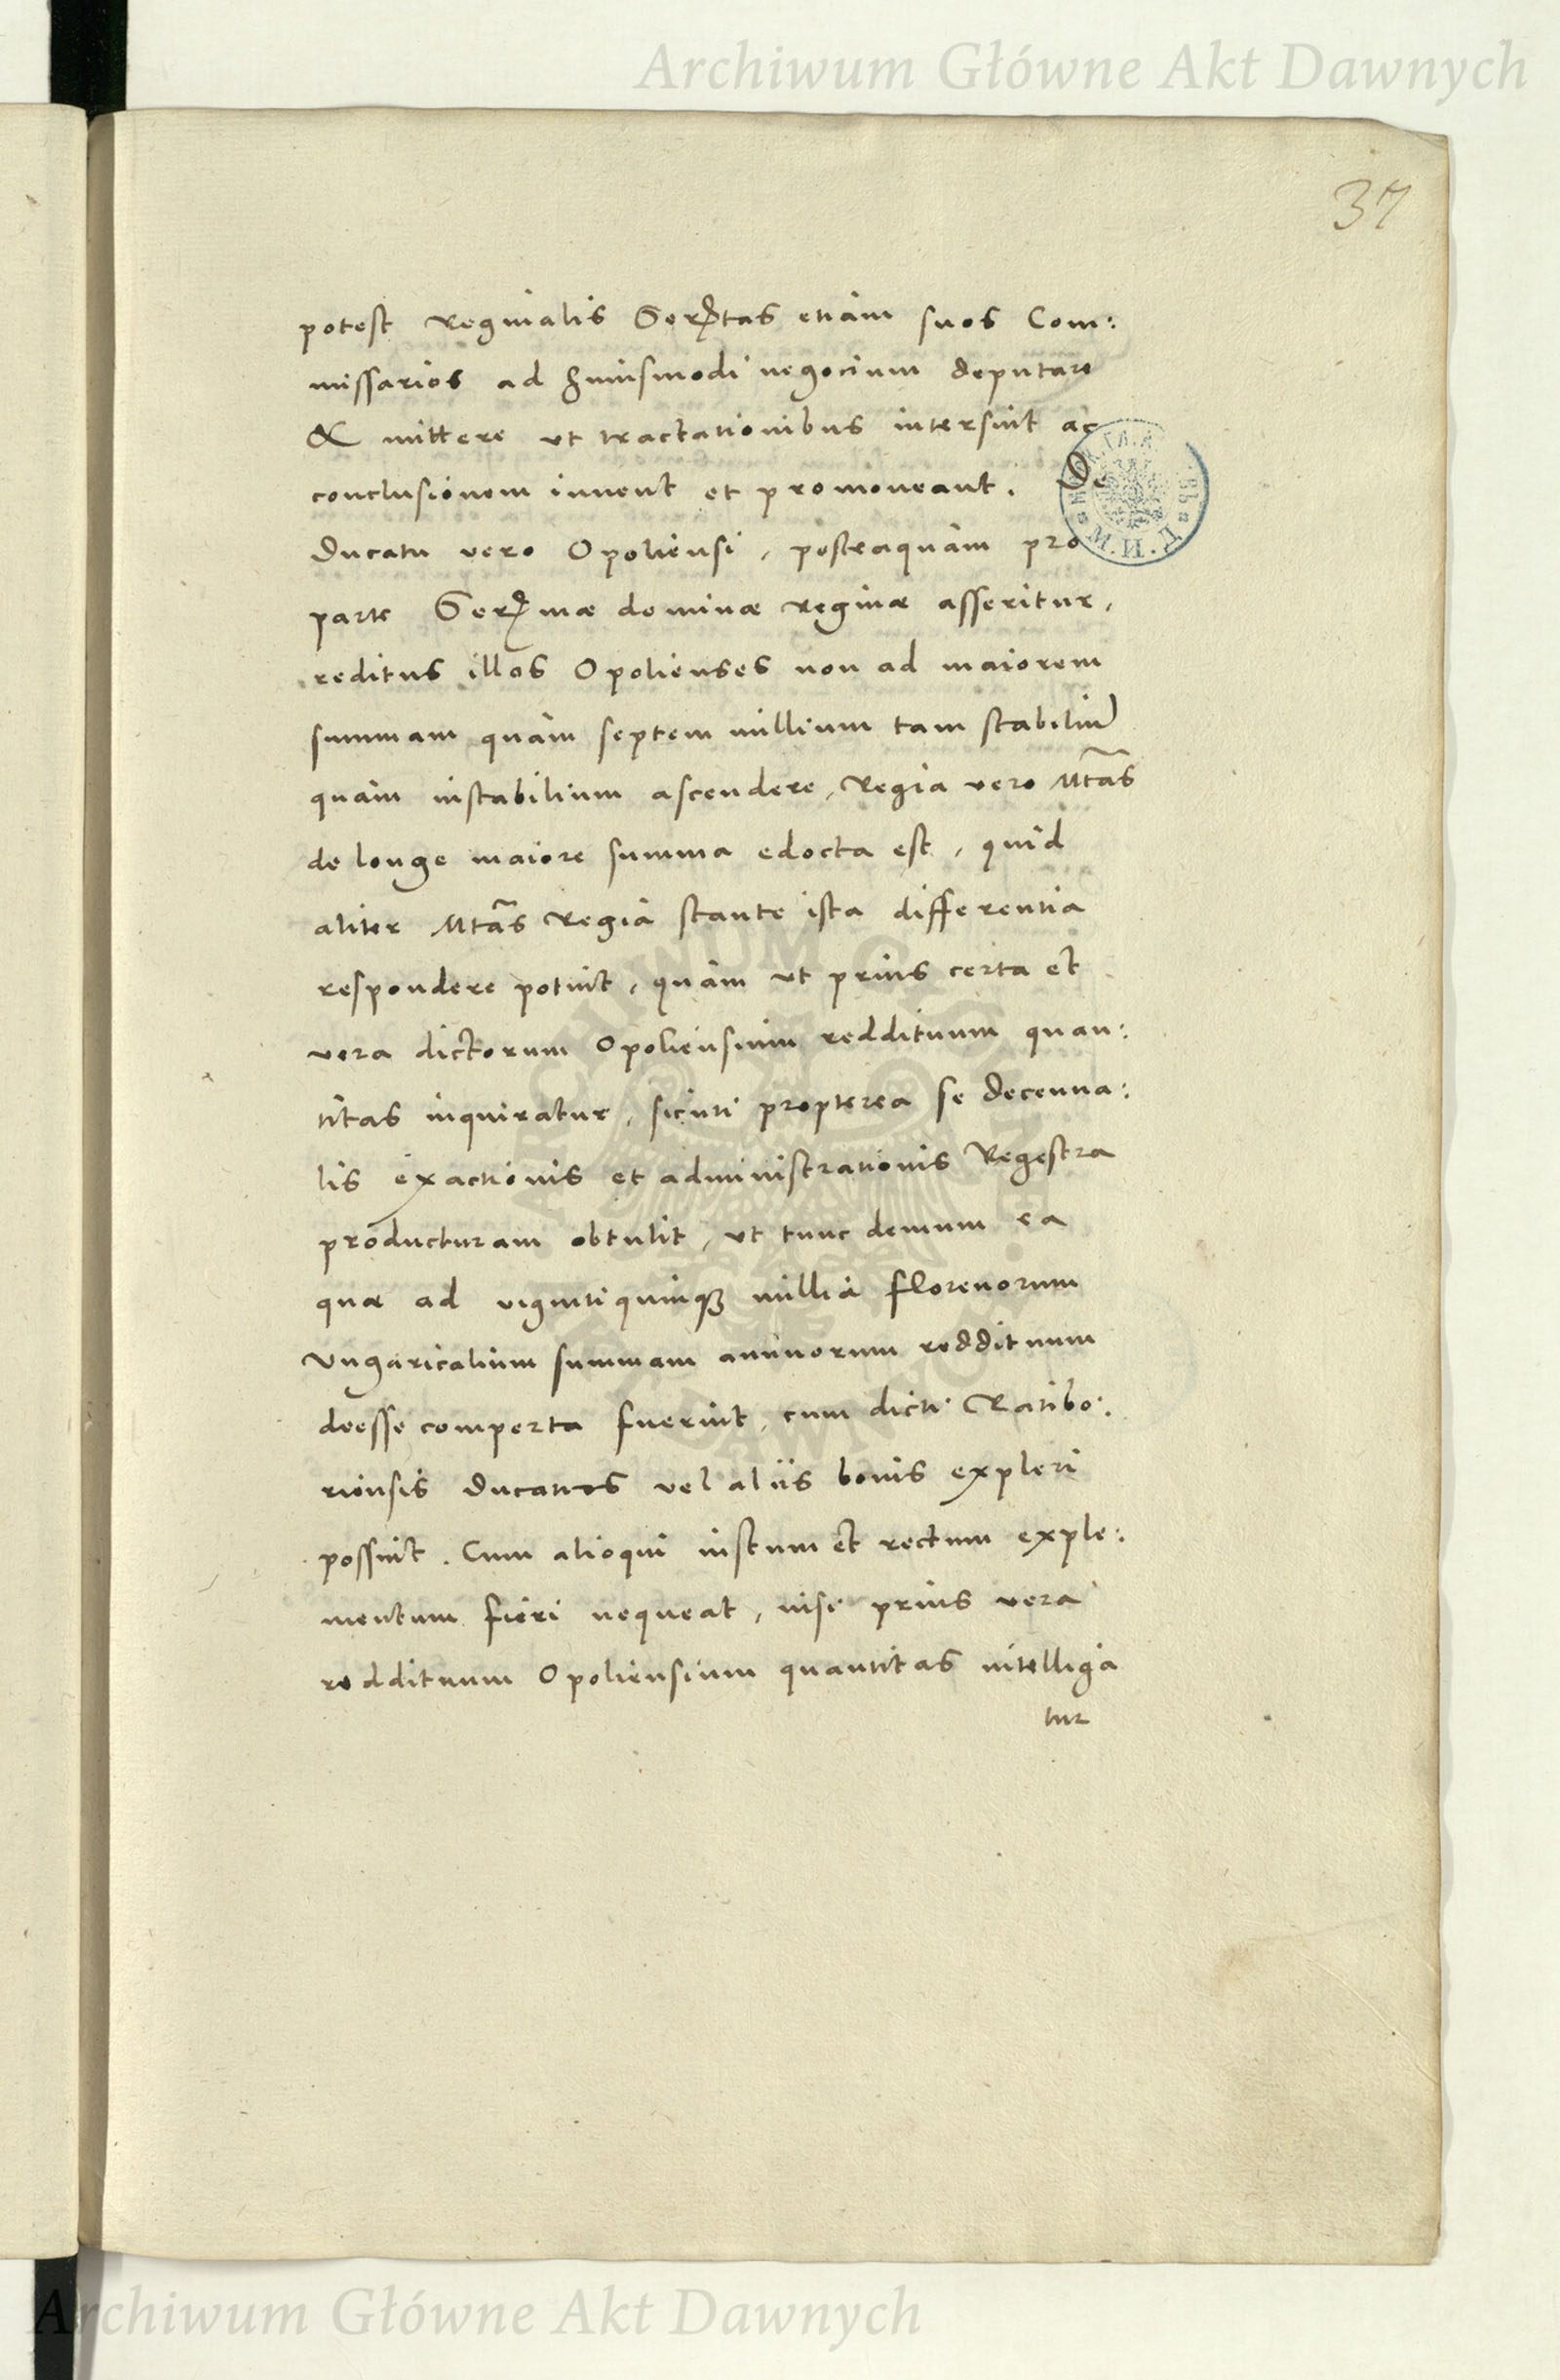 Archiwum Główne Akt Dawnych
37
potest Reginalis Serᵗᵃˢ etiam suos Com:
missarios ad huiusmodi negocium deputare
& mittere ut tractationibus intersint ac
conclusionem iuvent et promoveant. De
Ducatu vero Opoliensi, posteaquam pro
parte Serᵐæ dominæ Reginæ asseritur,
reditus illos Opolienses non ad maiorem
summam quàm septem millium tam stabiliū
quàm instabilium ascendere, Regia vero Mtãs
de longe maiore summa edocta est, quid
aliter Mtãs Regia stante ista differentia
respondere potuit, quàm ut prius certa et
vera dictorum Opoliensium reddituum quan:
titas inquiratur, sicuti propterea se decenna:
lis exactionis et administrationis Regestra
producturam obtulit, ut tunc demum ea
quæ ad viginti quinqꝫ millia florenorum
Ungaricalium summam annuorum reddituum
deesse comperta fuerint, cum dicti Ratibo:
riensis ducatus vel aliis bonis expleri
possint. Cum alioqui iustum et rectum exple:
mentum fieri nequeat, nisi prius vera
reddituum Opoliensium quantitas intelliga
tur
Archiwum Główne Akt Dawnych